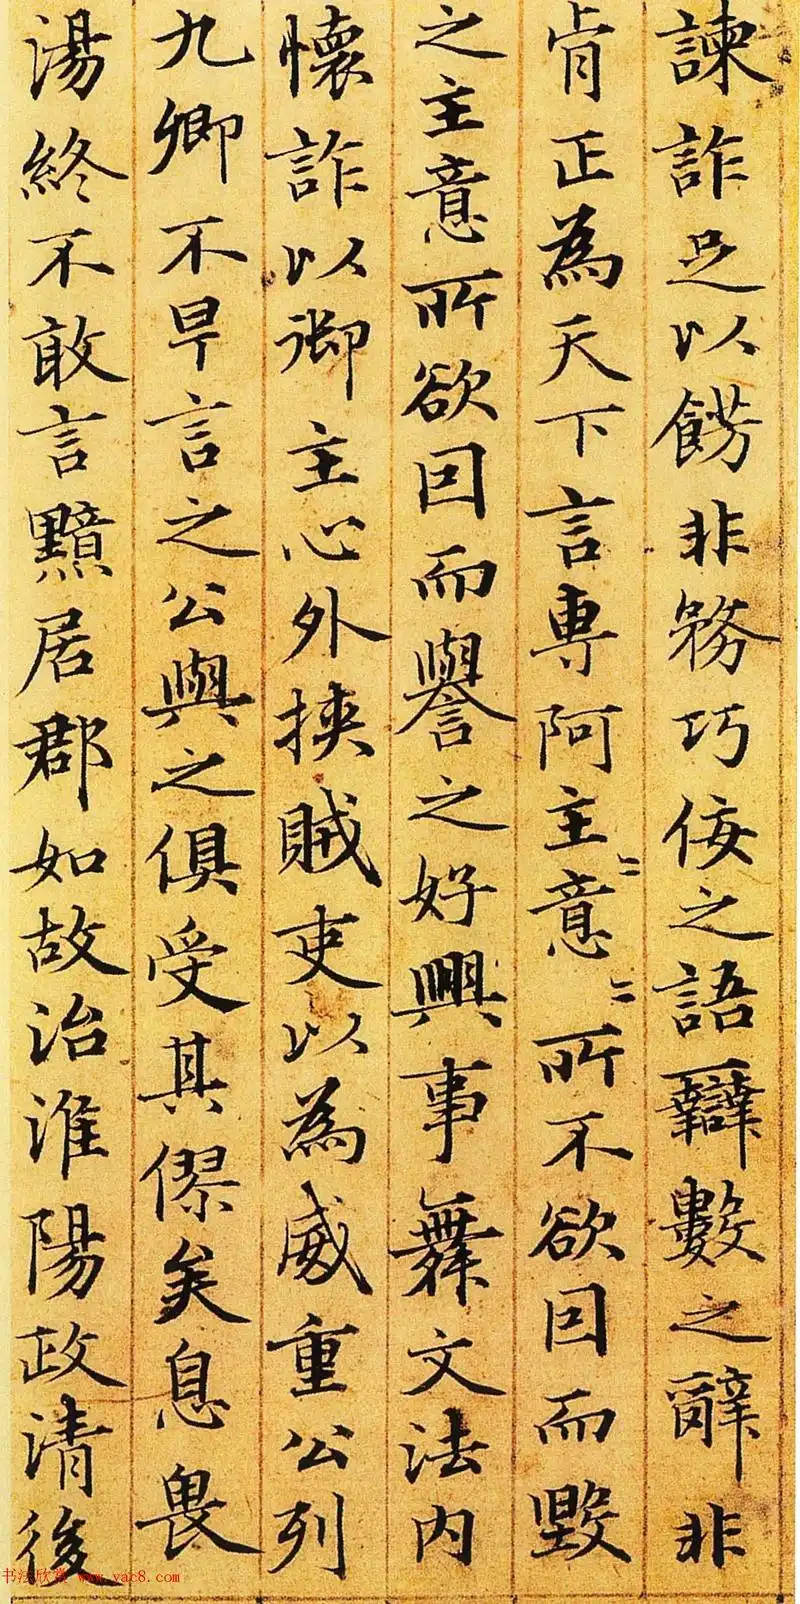 諫詐足以餝非務巧佞之語辯數之辭非
肯正為天下言専阿主意〻所不欲因而毀
之主意所欲因而譽之好興事舞文法內
懷詐以御主心外挾賊吏以為威重公列
九卿不早言之公與之俱受其僇矣息畏
湯終不敢言黯居郡如故治淮陽政清後
书法欣赏 www.yac8.com